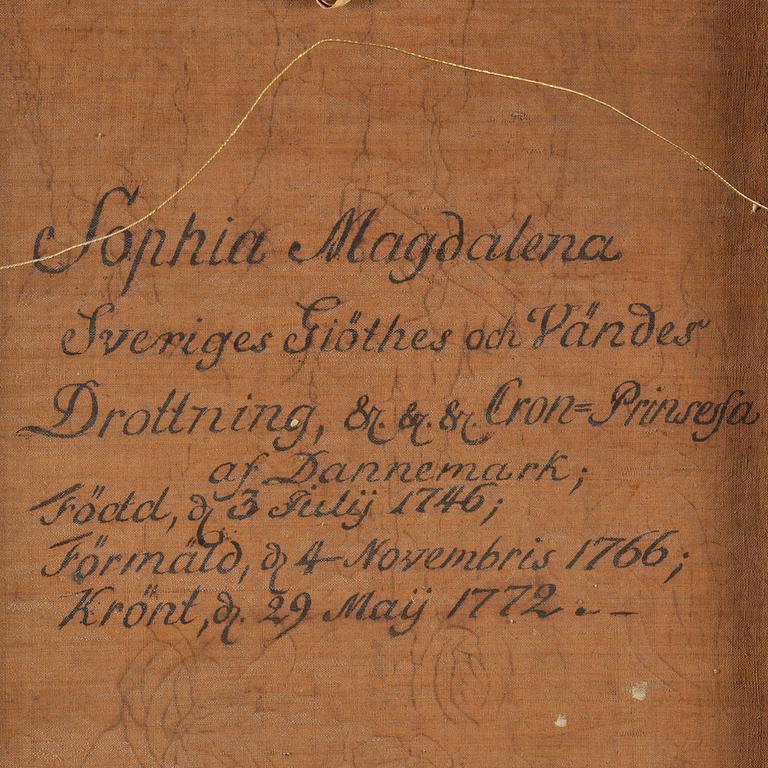 Sophia Magdalena
Sveriges Giöthes och Vändes
Drottning, &c. &c. &c. Cron=Prinsessa
af Dannemark;
Född, d. 3 Julij 1746;
Förmäld, d. 4 Novembris 1766;
Krönt, d. 29 Maÿ 1772.–